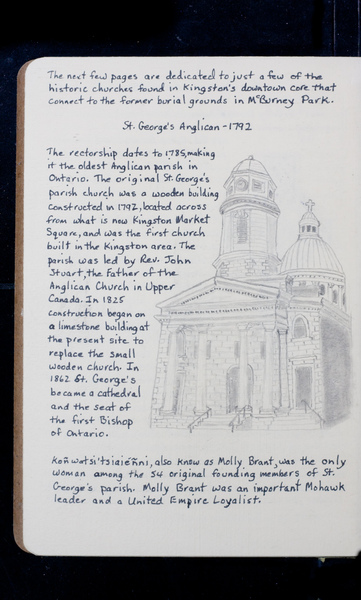 The next few pages are dedicated to just a few of the
historic churches found in Kingston's downtown core that
connect to the former burial grounds in McBurney Park.
St. George's Anglican - 1792
The rectorship dates to 1785, making
it the oldest Anglican parish in
Ontario. The original St. George's
parish church was a wooden building
constructed in 1792, located across
from what is now Kingston Market
Square, and was the first church
built in the Kingston area. The
parish was led by Rev. John
Stuart, the Father of the
Anglican Church in Upper
Canada. In 1825
construction began on
a limestone building at
the present site to
replace the small
wooden church. In
1862 St. George's
became a cathedral
and the seat of
the first Bishop
of Ontario.
also know as Molly Brant, was the only
woman among the 54 original founding members of St.
George's parish. Molly Brant was an important Mohawk
leader and a United Empire Loyalist.